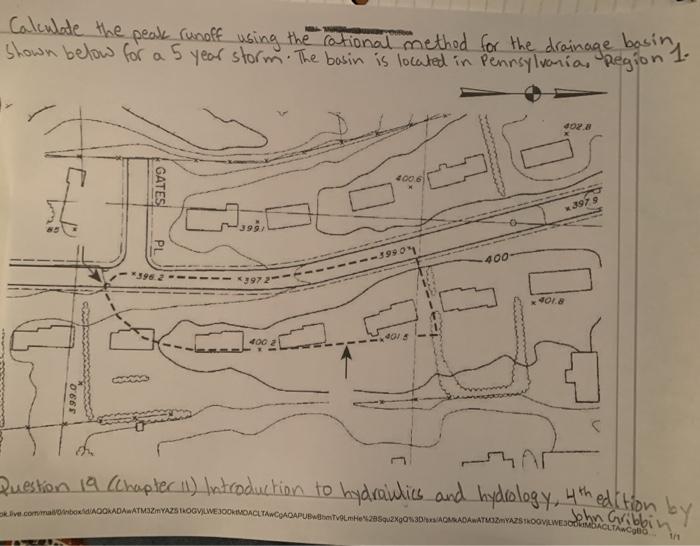 Calculate the peak runoff using the rational method for the drainage basin,
shown below for a 5 year storm. The basin is located in Pennsylvania, Region 1.
402.8
400.6
GATES PL
397.9
399.1
85
399.0
400
396.2
397.2
401.8
401.5
400.2
399.0
Question 19 (Chapter 11) Introduction to hydraulics and hydrology, 4th edition by
John Gribbin
1/1